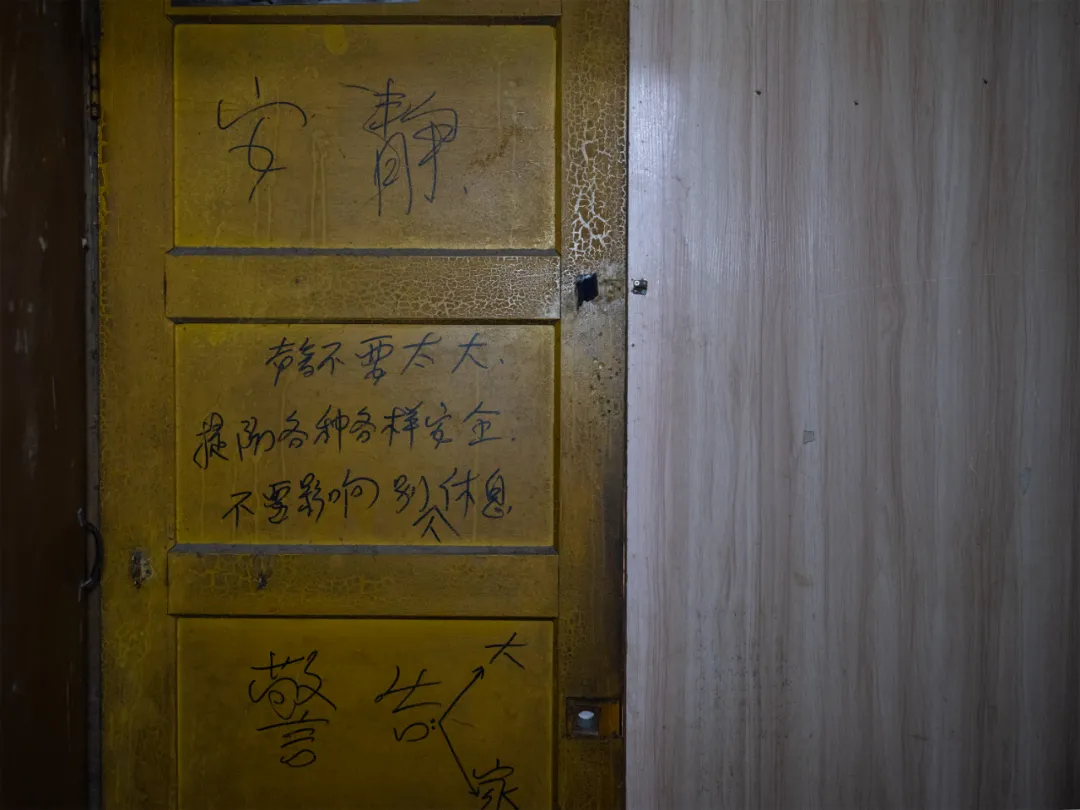 安静.
声音不要太大.
提防各种各样安全.
不要影响别人休息.
警告:大家